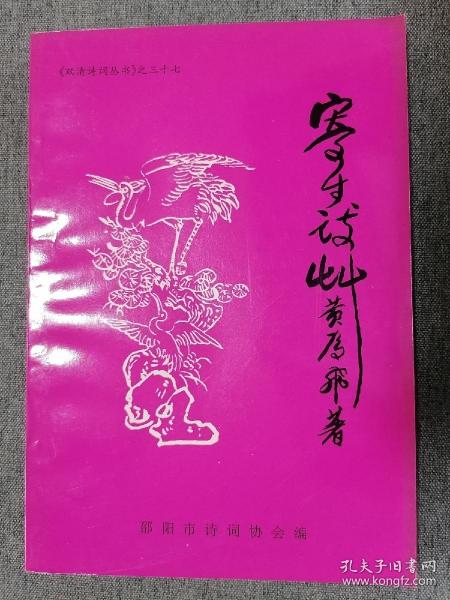 《双清诗词丛书》之三十七
寄生诗草
黄居邦著
邵阳市诗词协会编
孔夫子旧书网
www.kongfz.com